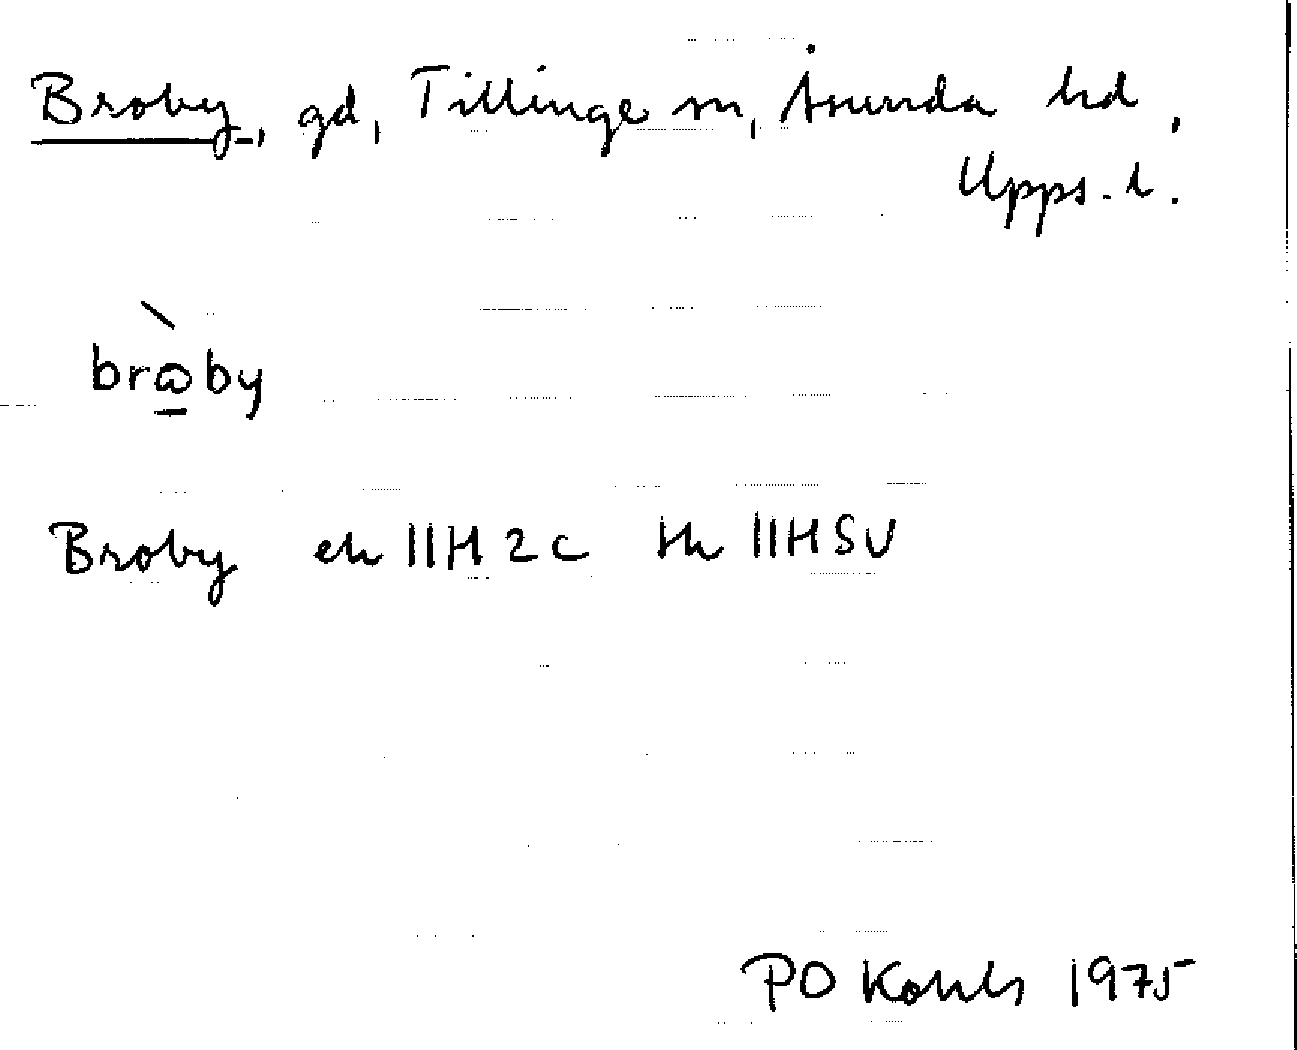 Broby, gd, Tillinge sn, Åsunda hd,
Upps. l.
brò̱by
Broby ek 11H 2c tk 11HSV
PO 1975